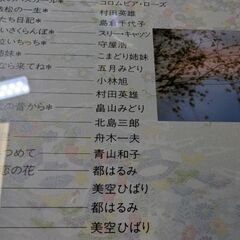 コロムビア・ローズ
松の一生＊ 村田英雄
たち日記＊ 島倉千代子
いさくらんぼ＊ スリー・キャッツ
泣いちっち＊ 守屋浩
姉妹＊ こまどり姉妹
なら来てね＊ 五月みどり
小林旭
村田英雄
の昔から＊ 畠山みどり
北島三郎
舟木一夫
つめて 青山和子
恋の花 都はるみ
美空ひばり
都はるみ
美空ひばり